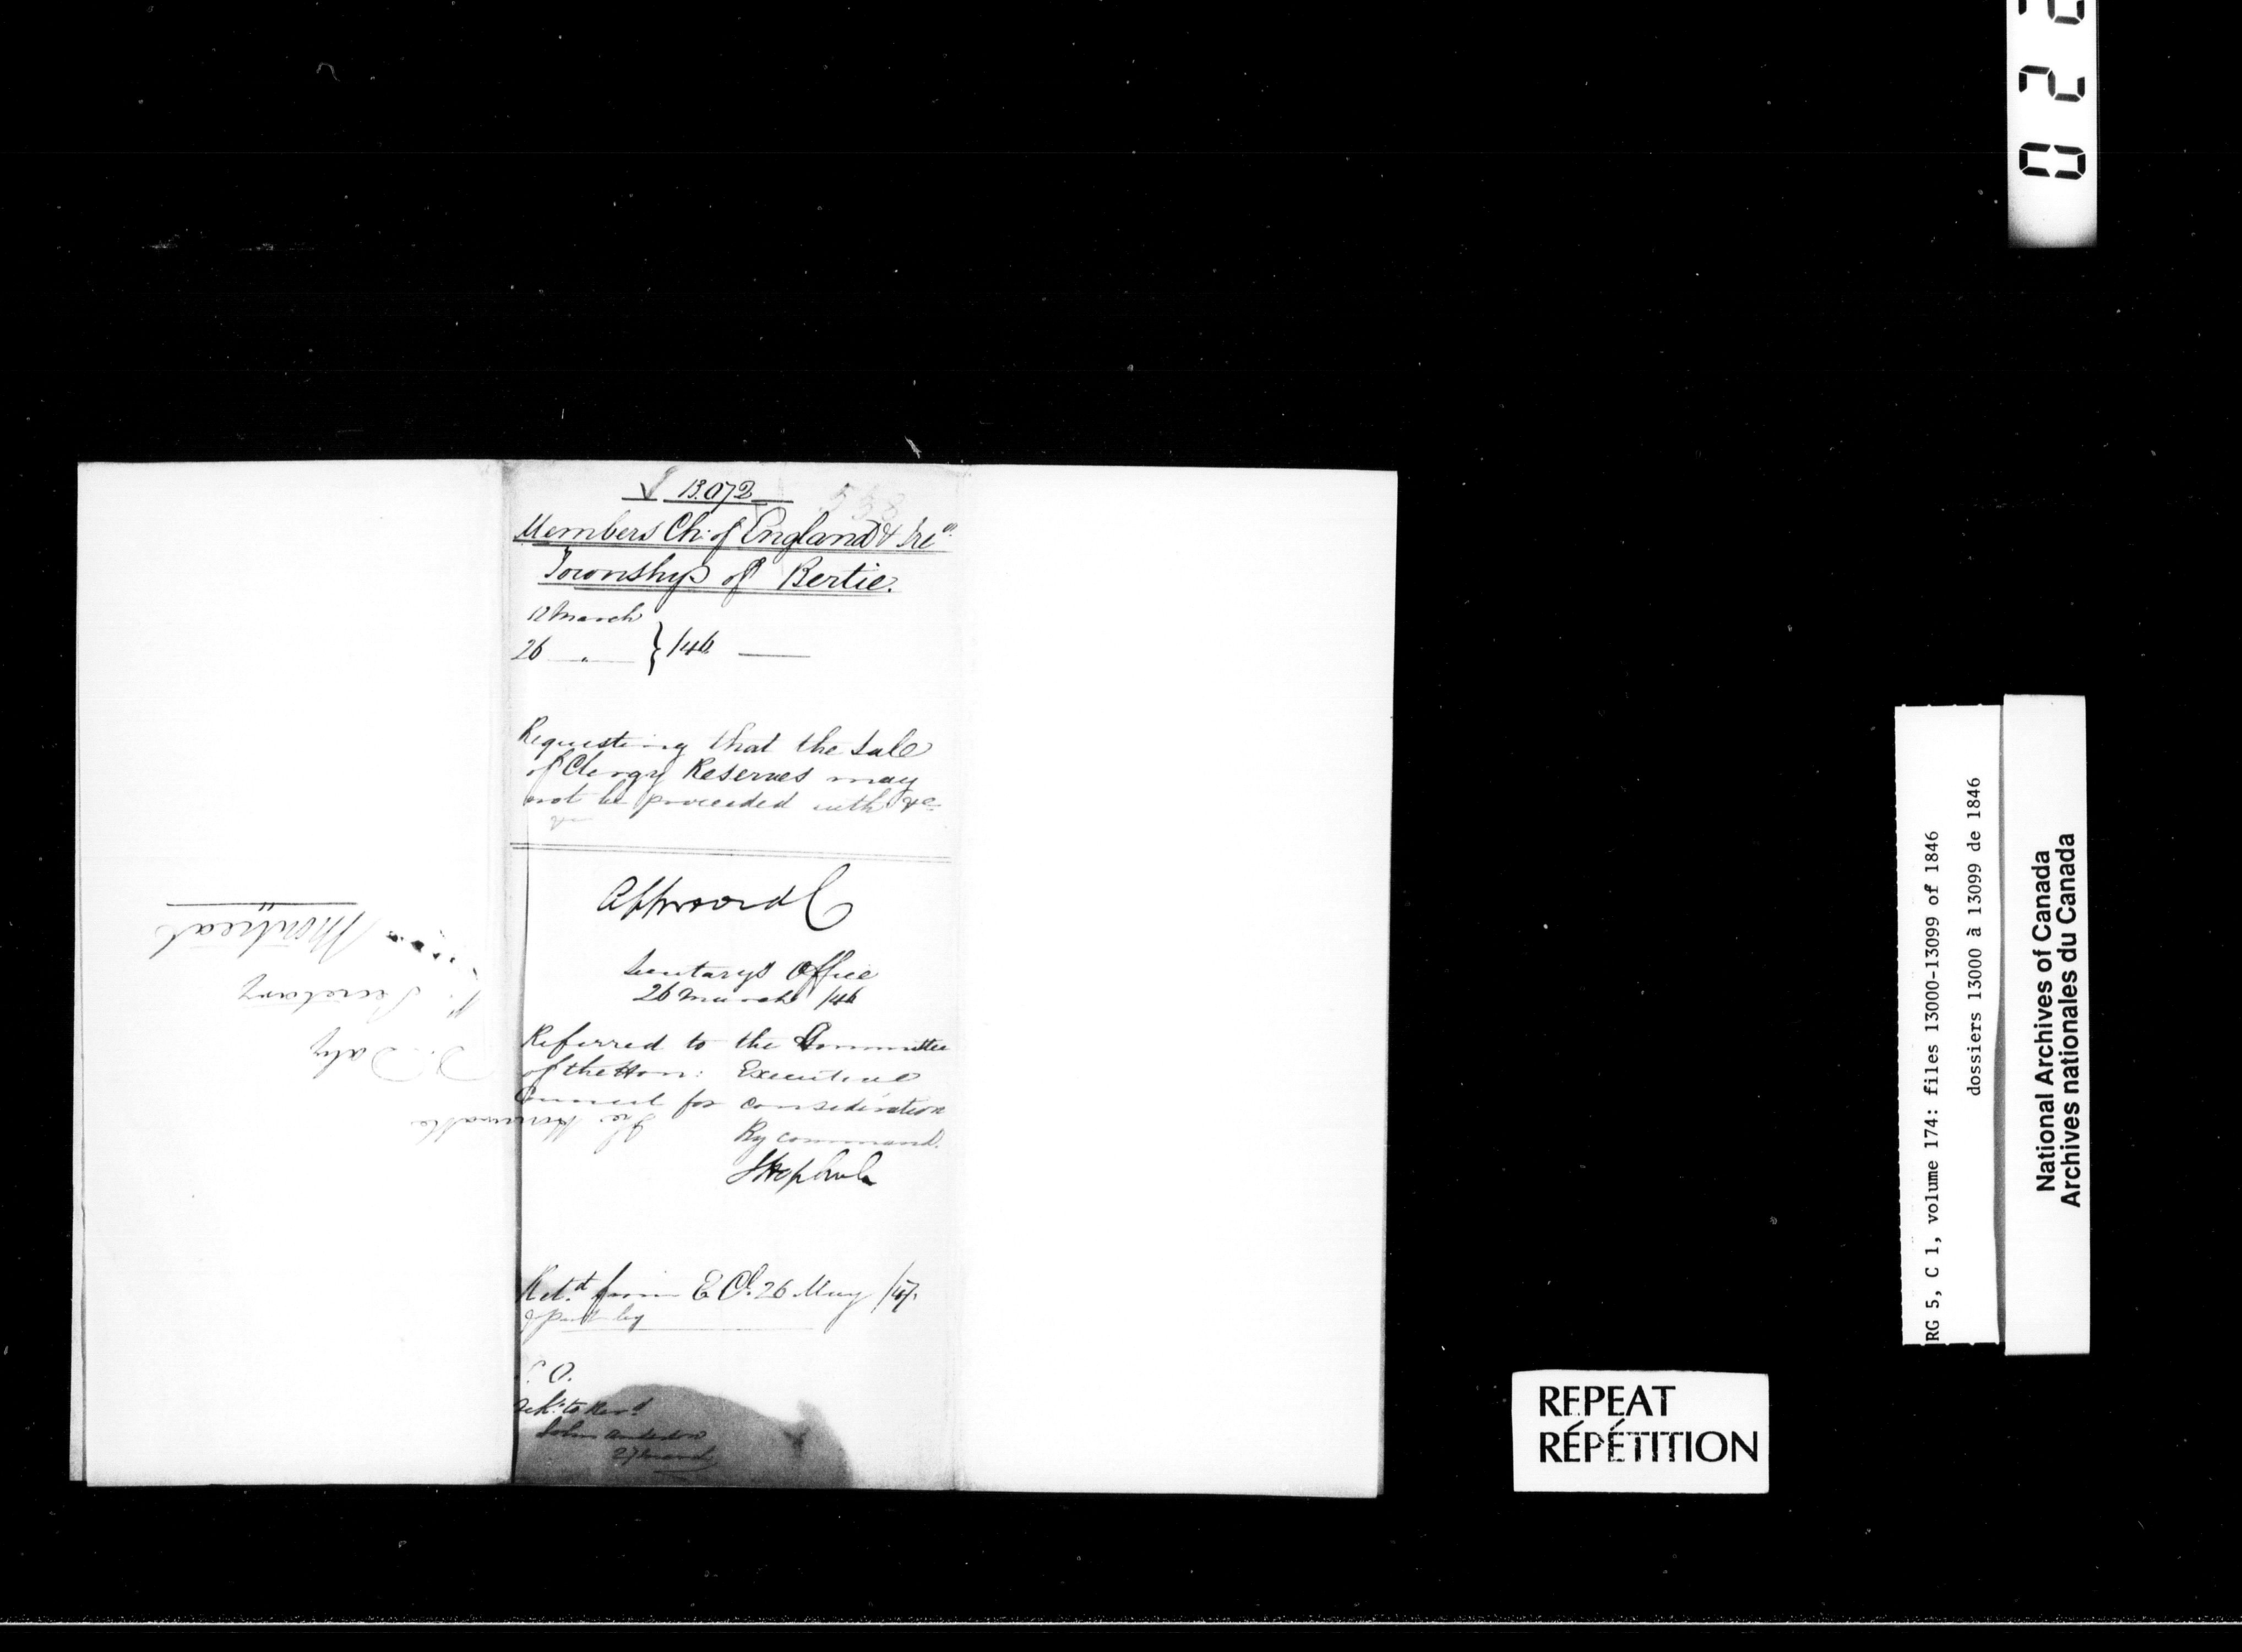 13.072
558
Members Ch: of England & Ire
Township of Bertie.
12 March
26 " } /46
Requesting that the Sale
of Clergy Reserves may
not be proceeded with &c
Approved
Secretary's Office
26 March /46
Referred to the Committee
of the Hon: Executive
Council for consideration
By command.
Retd from E C. 26 May /47.
Ack: to Revd
John Anderson
27 March
The Honorable
D. Daly
Secretary
Montreal
022
RG 5, C 1, volume 174: files 13000-13099 of 1846
dossiers 13000 à 13099 de 1846
National Archives of Canada
Archives nationales du Canada
REPEAT
RÉPÉTITION